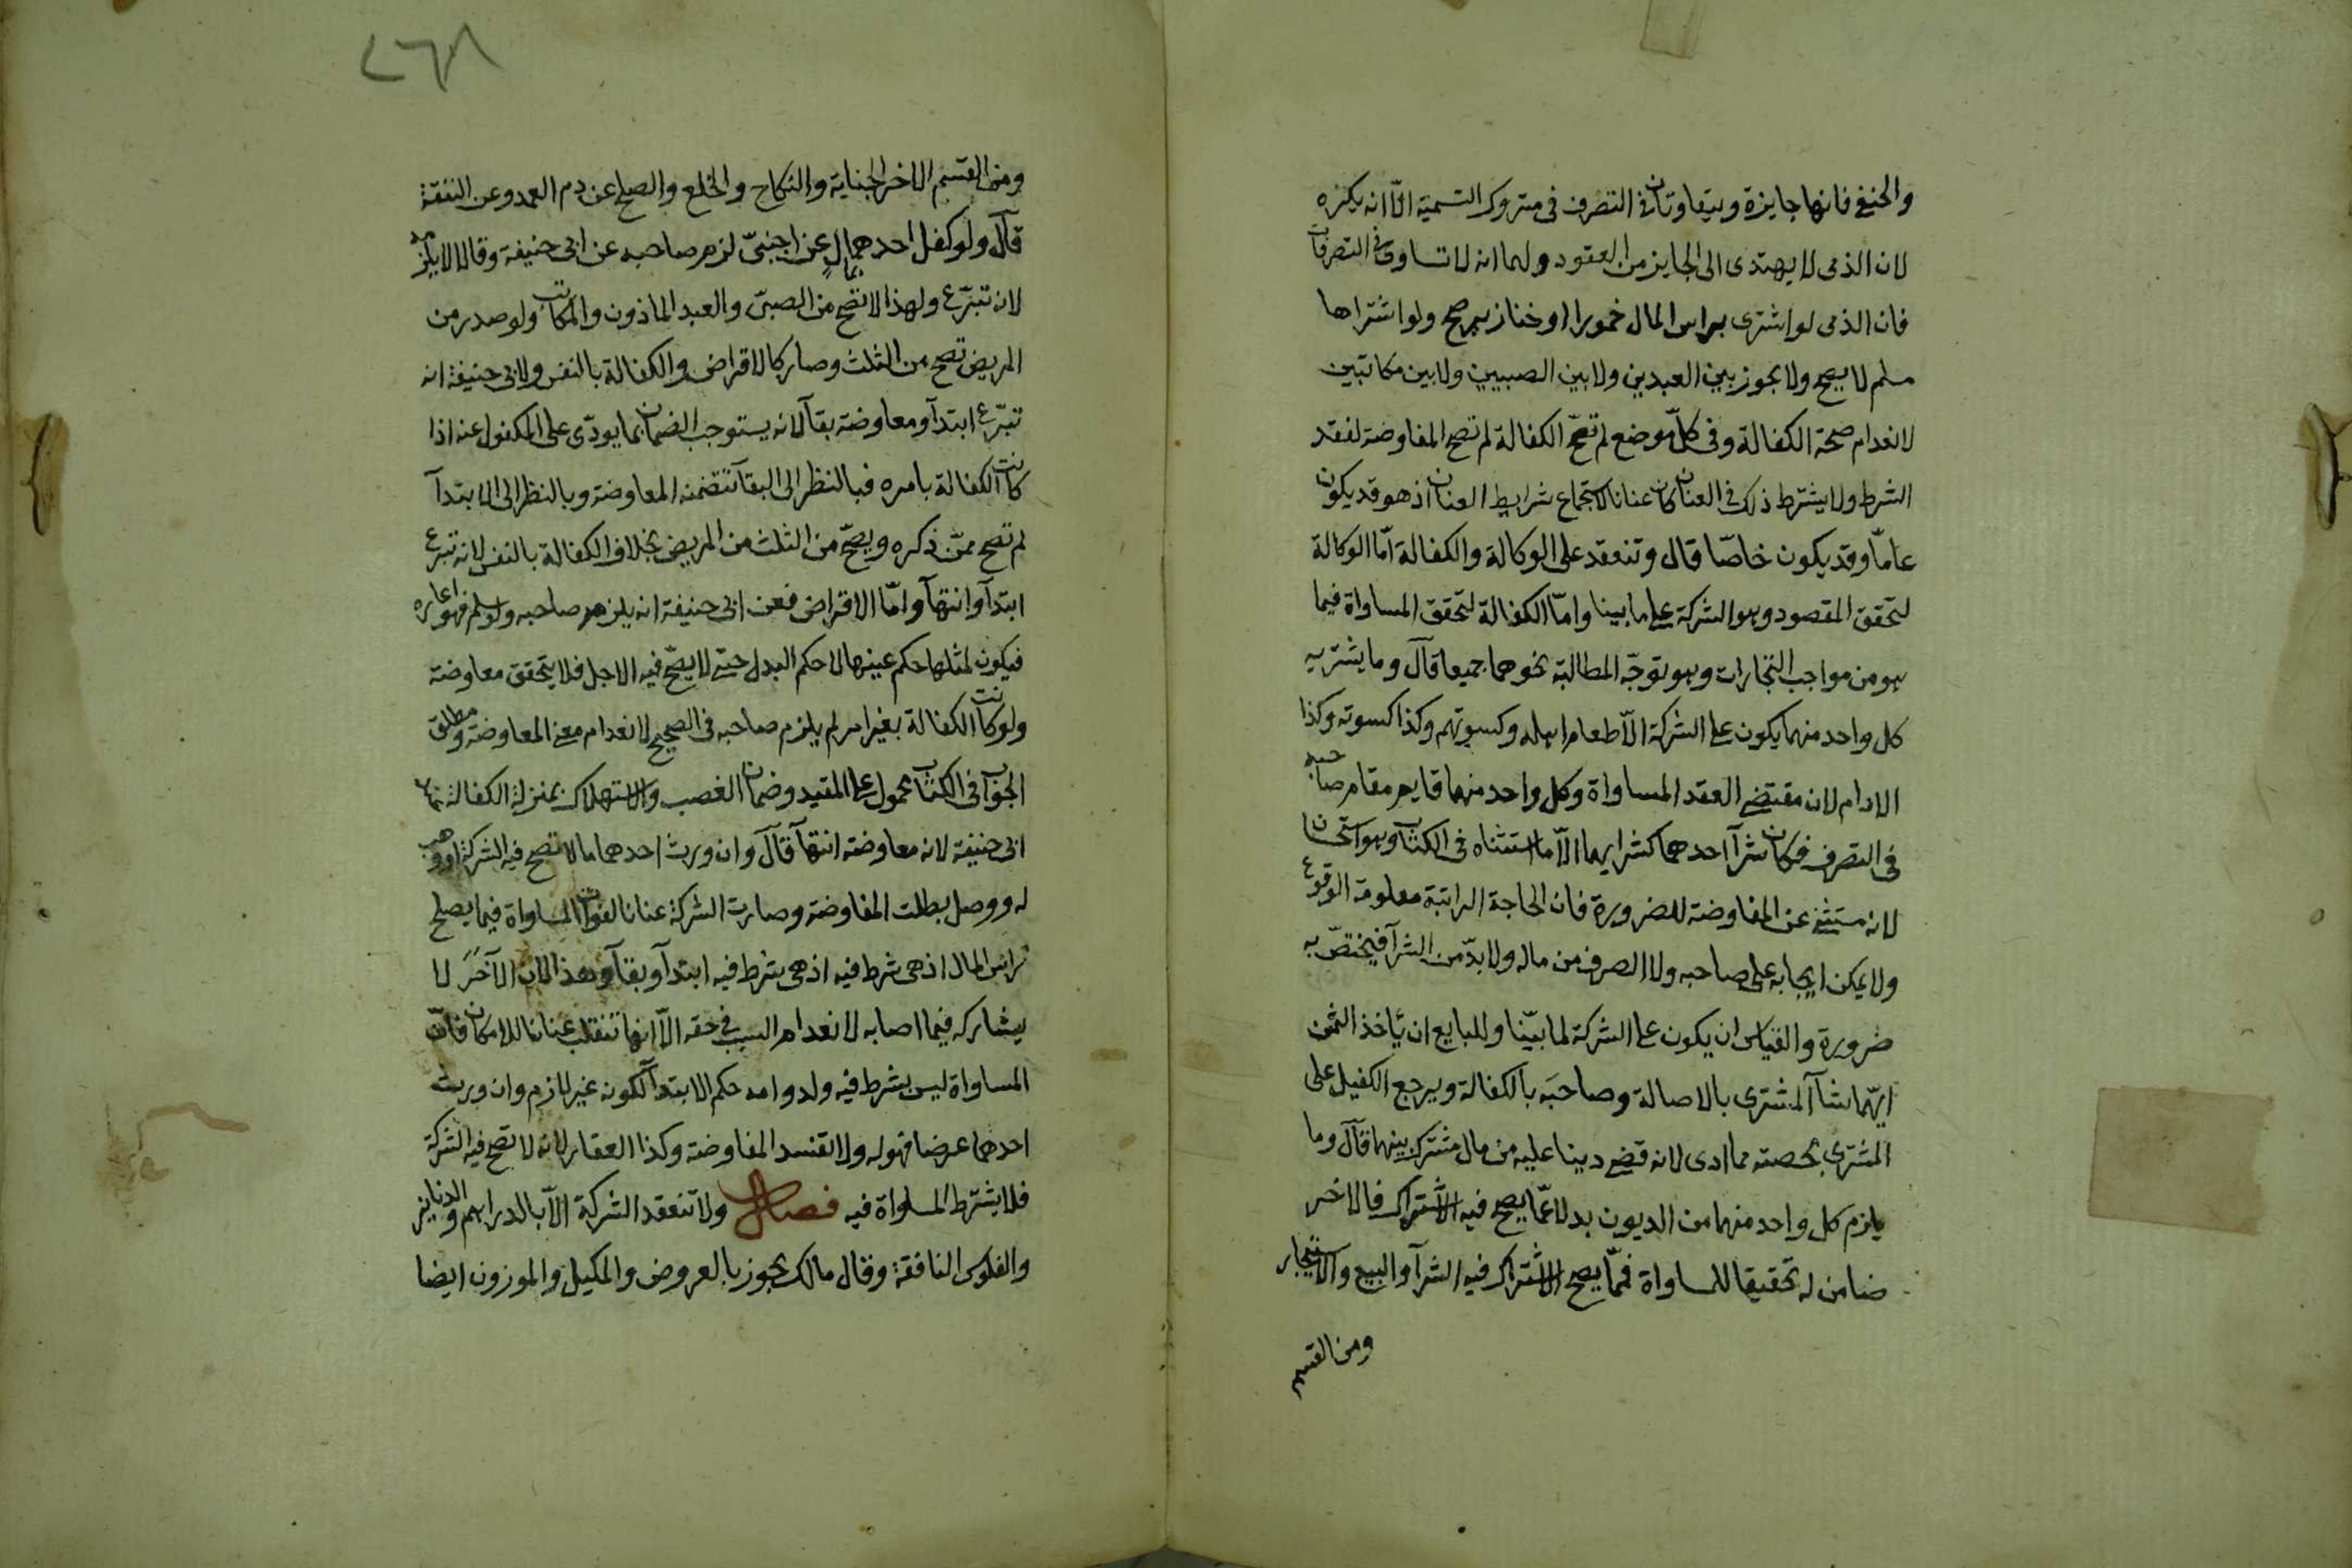 والحنفى فانها جايزة ويتفاوتان فى التصرف فى متروك التسمية الّا انه يكره
لان الذمى لا يهتدى الى الجايز من العقود ولهما انه لا تساوى فى التصرفات
فان الذمى لو اشترى براس المال خمورا او خنازير صح ولو اشتراها
مسلم لا يصح ولا يجوز بين العبدين ولا بين الصبيين ولا بين مكاتبين
لانعدام صحة الكفالة وفى كلّ موضع لم تصّح الكفالة لم تصح المفاوضة لفقد
الشرط ولا يشترط ذلك فى العنان كان عنانا لاستجماع شرايط العنان اذ هو قد يكون
عامّا وقد يكون خاصّا قال وتنعقد على الوكالة والكفالة امّا الوكالة
لتحقق المقصود وهو الشركة على ما بينا وامّا الكفالة لتحقق المساواة فيما
هو من مواجب التجارات وهو توجّه المطالبة نحوهما جميعا قال وما يشتريه
كل واحد منهما يكون على الشركة الّا طعام اهله وكسوتهم وكذا كسوته وكذا
الادام لان مقتضى العقد المساواة وكل واحد منهما قايم مقام صاحبه
فى التصرف فكان شرآ احدهما كشرايهما الّا ما استثناه فى الكتاب وهو استحسان
لانه مستثنى عن المفاوضة للضرورة فان الحاجة الراتبة معلومة الوقوع
ولا يمكن ايجابه على صاحبه ولا الصرف من ماله ولا بدّ من الشرآ فيختصّ به
ضرورة والقياس ان يكون على الشركة لما بيّنا وللبايع ان يأخذ الثمن
ايّهما شآ المشترى بالاصالة وصاحبه بالكفالة ويرجع الكفيل على
المشترى بحصته مما ادى لانه قضى دينا عليه من مال مشترك بينهما قال وما
يلزم كل واحد منهما من الديون بدلا عمّا يصح فيه الاشتراك فالاخر
ضامن له تحقيقا للمساواة فممّا يصح الاشتراك فيه الشرآ والبيع والاستيجار
ومن القسم
٢٦٨
ومن القسم الاخر الجناية والنكاح والخلع والصلح عن دم العمد وعن النفقة
قال ولو كفل احدهما بمال عن اجنبىّ لزم صاحبه عن ابى حنيفة وقالا لا يلزمه
لانه تبرّع ولهذا لا تصح من الصبىّ والعبد الماذون والمكاتب ولو صدر من
المريض تصح من الثلث وصار كالاقراض والكفالة بالنفس ولابى حنيفة انه
تبرّع ابتدآ ومعاوضة بقآ لانه يستوجب الضمان بما يودّى على المكفول عنه اذا
كانت الكفالة بامره فبالنظر الى البقآ تتضمنه المعاوضة وبالنظر الى الابتدآ
لم تصح ممّن ذكره ويصحّ من الثلث من المريض بخلاف الكفالة بالنفس لانه تبرع
ابتدآ وانتهآ وامّا الاقراض فعن ابى حنيفة انه يلزم صاحبه ولو سلم فهو اعاره
فيكون لمثلها حكم عينها لا حكم البدل حتى لا يصحّ فيه الاجل فلا يتحقق معاوضة
ولو كانت الكفالة بغير امر لم يلزم صاحبه فى الصحيح لانعدام معنى المعاوضة ومطلق
الجواب فى الكتاب محمول على المقيد وضمان الغصب والاستهلاك بمنزلة الكفالة عند
ابى حنيفة لانه معاوضة انتهآ قال وان ورث احدهما مالا تصح فيه الشركة او وهب
له ووصل بطلت المفاوضة وصارت الشركة عنانا لفوات المساواة فيما يصلح
راس المال اذ هى شرط فيه اذ هى شرط فيه ابتدآ وبقآ وهذا لان الآخر لا
يشاركه فيما اصابه لانعدام السبب فى حقه الّا انها تنقلب عنانا للامكان فانّ
المساواة ليس بشرط فيه ولدوامه حكم الابتدآ لكونه غير لازم وان ورث
احدهما عرضا فهو له ولا تفسد المفاوضة وكذا العقار لانه لا تصح فيه الشركة
فلا يشترط المساواة فيه فصل ولا تنعقد الشركة الّا بالدراهم والدنانير
والفلوس النافقة وقال مالك يجوز بالعروض والمكيل والموزون ايضا